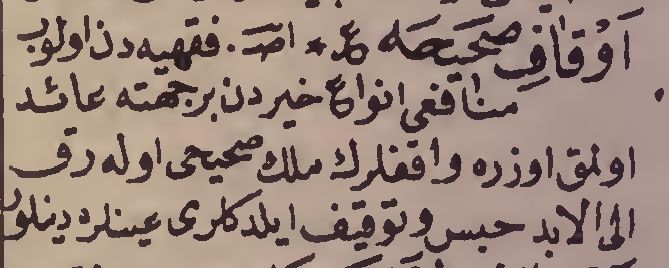 اَوْقَافِ صَحِيحَه ع * اصـ. فقهيه دن اولوب
منافعى انواع خيردن بر جهته عائد
اولمق اوزره واقفلرك ملك صحيحى اوله رق
الى الابد حبس و توقيف ايلدكلرى عينلردر دينلور